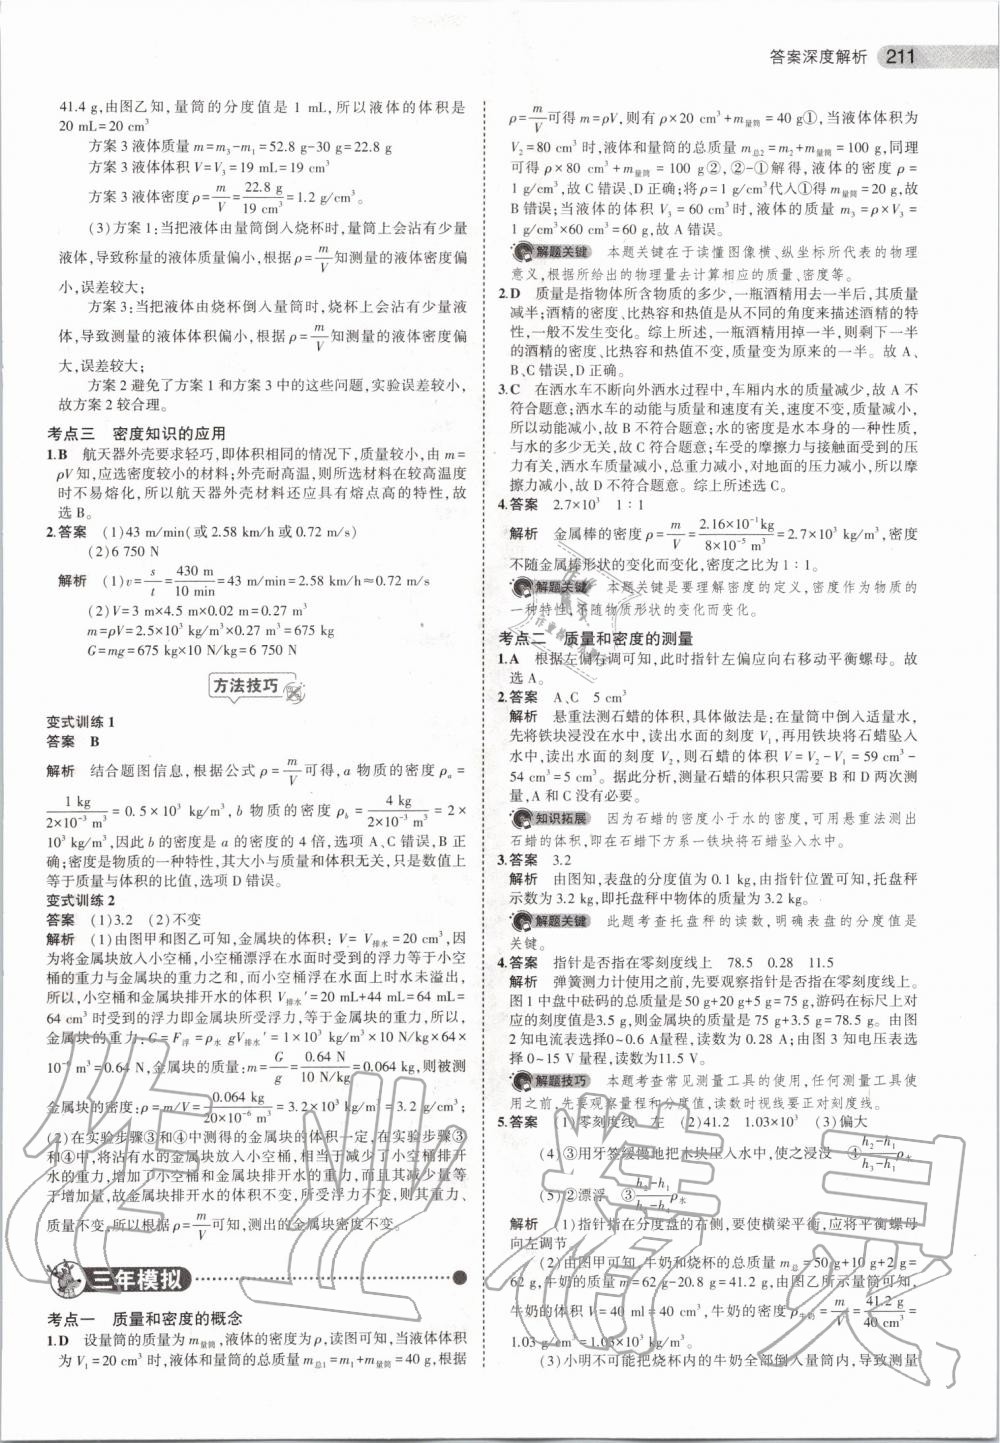 答案深度解析 211
41.4 g,由图乙知,量筒的分度值是 1 mL,所以液体的体积是
20 mL=20 cm³
方案 3 液体质量 m=m₃-m₁=52.8 g-30 g=22.8 g
方案 3 液体体积 V=V₃=19 mL=19 cm³
方案 3 液体密度 ρ=m/V=22.8 g/19 cm³=1.2 g/cm³。
(3)方案 1:当把液体由量筒倒入烧杯时,量筒上会有残留
液体,导致称量的液体质量偏小,根据 ρ=m/V知测量的液体密度偏
小,误差较大;
方案 3:当把液体由烧杯倒入量筒时,烧杯上会有残留液
体,导致测量的液体体积偏小,根据 ρ=m/V知测量的液体密度偏
大,误差较大;
方案 2 避免了方案 1 和方案 3 中的这些问题,实验误差较小,
故方案 2 较合理。
考点三 密度知识的应用
1.B 航天器外壳要求轻巧,即体积相同的情况下,质量较小,由 m=
ρV 知,应选密度较小的材料;外壳耐高温,则所选材料在较高温度
时不易熔化,所以航天器外壳材料还应具有熔点高的特性,故
选 B。
2.答案 (1)43 m/min(或 2.58 km/h或 0.72 m/s)
(2)6 750 N
解析 (1)v=s/t=430 m/10 min=43 m/min=2.58 km/h≈0.72 m/s
(2)V=3 m×4.5 m×0.02 m=0.27 m³
m=ρV=2.5×10³ kg/m³×0.27 m³=675 kg
G=mg=675 kg×10 N/kg=6 750 N
方法技巧
变式训练 1
答案 B
解析 结合题图信息,根据公式 ρ=m/V可得,a 物质的密度 ρₐ=
1 kg/2×10⁻³ m³=0.5×10³ kg/m³,b 物质的密度 ρb=4 kg/2×10⁻³ m³=2×
10³ kg/m³,因此 b 的密度是 a 的密度的 4 倍,选项 A、C 错误,B 正
确;密度是物质的一种特性,其大小与质量和体积无关,只是数值上
等于质量与体积的比值,选项 D 错误。
变式训练 2
答案 (1)3.2 (2)不变
解析 (1)由图甲和图乙可知,金属块的体积:V=V排水=20 cm³,因
为将金属块放入小空桶,小空桶漂浮在水面时受到的浮力等于小空
桶的重力与金属块的重力之和,而小空桶浮在水面上时水未溢出,
所以,小空桶和金属块排开水的体积 V排水′=20 mL+44 mL=64 mL=
64 cm³ 时受到的浮力即金属块所受浮力,等于金属块的重力,所以,
金属块的重力:G=F浮=ρ水 gV排水′=1×10³ kg/m³×10 N/kg×64×
10⁻⁶ m³=0.64 N,金属块的质量:m=G/g=0.64 N/10 N/kg=0.064 kg,则被测
金属块的密度:ρ=m/V=0.064 kg/20×10⁻⁶ m³=3.2×10³ kg/m³=3.2 g/cm³;
(2)在实验步骤③和④中测得的金属块的体积一定,在实验步骤③
和④中,将沾有水的金属块放入小空桶,相当于减少了小空桶排开
水的重力,增加了小空桶和金属块排开水的重力,而且其减少量等
于增加量,故金属块排开水的体积不变,所受浮力不变,则其重力、
质量不变,所以根据 ρ=m/V可知,测出的金属块密度不变。
三年模拟
考点一 质量和密度的概念
1.D 设量筒的质量为 m量筒,液体的密度为 ρ,读图可知,当液体体积
为 V₁=20 cm³ 时,液体和量筒的总质量 m总1=m₁+m量筒=40 g,根据
ρ=m/V可得 m=ρV,则有 ρ×20 cm³+m量筒=40 g①,当液体体积为
V₂=80 cm³ 时,液体和量筒的总质量 m总2=m₂+m量筒=100 g,同理
可得 ρ×80 cm³+m量筒=100 g②,②-①解得,液体的密度 ρ=
1 g/cm³,故 C 错误、D 正确;将 ρ=1 g/cm³代入①得 m量筒=20 g,故
B 错误;当液体的体积 V₃=60 cm³时,液体的质量 m₃=ρ×V₃=
1 g/cm³×60 cm³=60 g,故 A 错误。
解题关键 本题关键在于读懂图像横、纵坐标所代表的物理
意义,根据所给出的物理量去计算相应的质量、密度等。
2.D 质量是指物体所含物质的多少,一瓶酒精用去一半后,其质量
减半;酒精的密度、比热容和热值是从不同的角度来描述酒精的特
性,一般不发生变化。综上所述,一瓶酒精用掉一半,则剩下一半
的酒精的密度、比热容和热值不变,质量变为原来的一半。故 A、
B、C 错误,D 正确。
3.C 在洒水车不断向外洒水过程中,车厢内水的质量减少,故 A 不
符合题意;洒水车的动能与质量和速度有关,速度不变,质量减小,
所以动能减小,故 B 不符合题意;水的密度是水的一种属性,
与水的多少无关,故 C 符合题意;车受的摩擦力与接触面受到的压
力有关,洒水车质量减小,重力减小,对地面的压力减小,所以摩
擦力减小,故 D 不符合题意。综上所述选 C。
4.答案 2.7×10³ 1∶1
解析 金属棒的密度 ρ=m/V=2.16×10⁻¹kg/8×10⁻⁵ m³=2.7×10³ kg/m³,密度
不随金属棒形状的变化而变化,密度之比为 1∶1。
解题关键 本题关键是要理解密度的定义,密度作为物质的
一种特性,不随物质形状的变化而变化。
考点二 质量和密度的测量
1.A 根据左偏右调可知,此时指针左偏应向右移动平衡螺母。故
选 A。
2.答案 A、C 5 cm³
解析 悬重法测石蜡的体积,具体做法是:在量筒中倒入适量水,
先将铁块浸没在水中,读出水面的刻度 V₁,再用铁块将石蜡坠入
水中,读出水面的刻度 V₂,则石蜡的体积 V=V₂-V₁=59 cm³-
54 cm³=5 cm³。据此分析,测量石蜡的体积只需要 B 和 D 两次测
量,A 和 C 没有必要。
知识拓展 因为石蜡的密度小于水的密度,可用悬垂法测出
石蜡的体积,即在石蜡下方系一铁块将石蜡坠入水中。
3.答案 3.2
解析 由图知,表盘的分度值为 0.1 kg,由指针位置可知,托盘秤
示数为 3.2 kg,即托盘秤中物体的质量为 3.2 kg。
解题关键 此题考查托盘秤的读数,明确表盘的分度值是
关键。
4.答案 指针是否指在零刻度线上 78.5 0.28 11.5
解析 弹簧测力计使用之前,先要观察指针是否指在零刻度线上。
图 1 中盘中砝码的总质量是 50 g+20 g+5 g=75 g,游码在标尺上对
应的刻度值是3.5 g,则金属块的质量是 75 g+3.5 g=78.5 g。由图
2 知电流表选择0~0.6 A量程,读数为 0.28 A;由图 3 知电压表选
择 0~15 V 量程,读数为11.5 V。
解题技巧 本题考查常见测量工具的使用,任何测量工具使
用之前,先要观察量程和分度值,读数时视线要正对刻度线。
5.答案 (1)零刻度线 左 (2)41.2 1.03×10³ (3)偏大
(4)③用牙签缓慢地把木块压入水中,使之浸没 ④h₂-h₁/h₃-h₁ρ水
(5)②漂浮 ③h₂-h₁/h₃-h₁ρ水
解析 (1)指针指在分度盘的右侧,要使横梁平衡,应将平衡螺母
向左调节。
(2)由图甲可知,牛奶和烧杯的总质量 m总=50 g+10 g+2 g=
62 g,牛奶的质量 m=62 g-20.8 g=41.2 g,由图乙所示量筒可知,
牛奶的体积 V=40 ml=40 cm³,牛奶的密度 ρ牛奶=m/V=41.2 g/40 cm³=
1.03 g/cm³=1.03×10³ kg/m³。
(3)小明不可能把烧杯内的牛奶全部倒入量筒内,导致测量
作业精灵